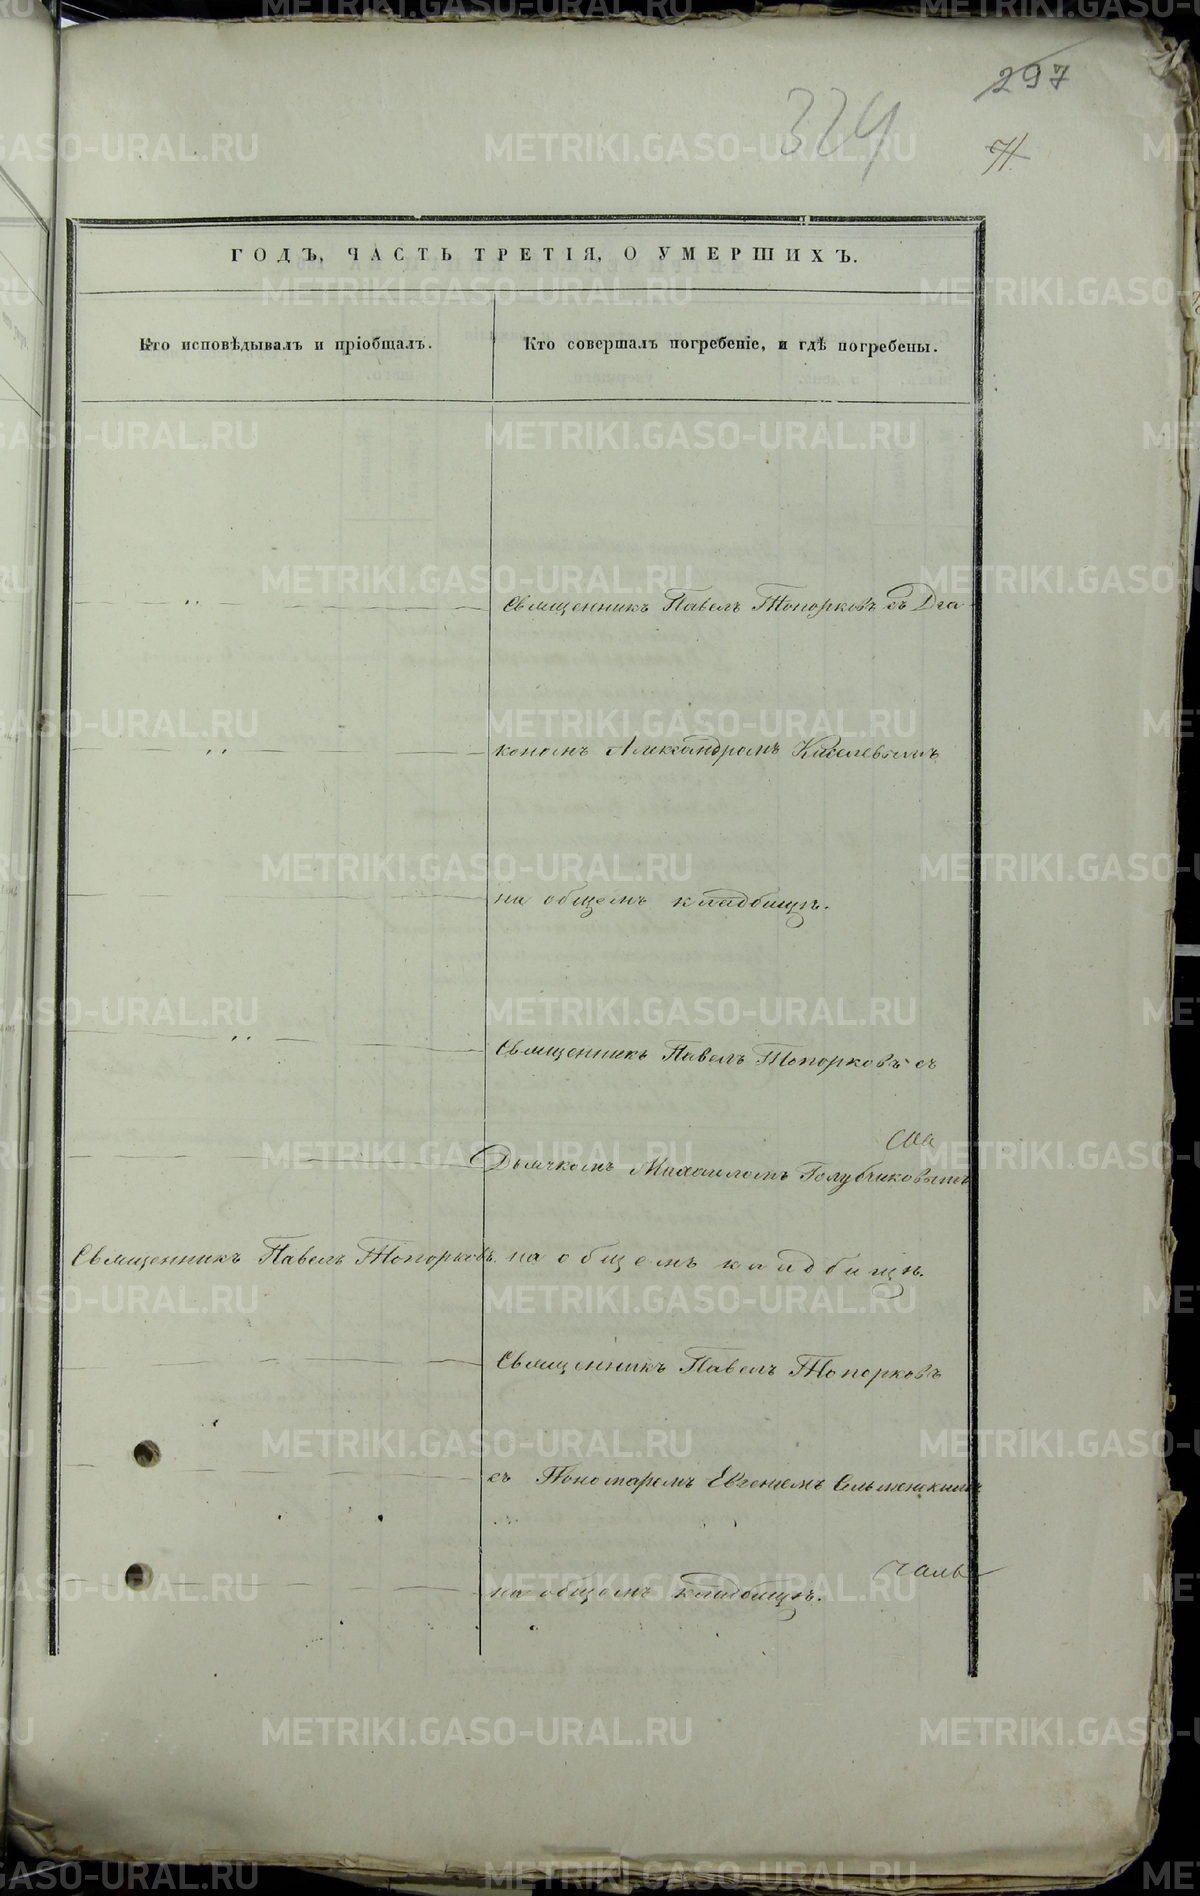 297
324
71.
ГОДЪ, ЧАСТЬ ТРЕТІЯ, О УМЕРШИХЪ.
Кто исповѣдывалъ и пріобщалъ.
Кто совершалъ погребеніе, и гдѣ погребены.
Священникъ Павелъ Топорковъ съ Діа
кономъ Александромъ Киселевымъ
на общемъ кладбищѣ.
Священникъ Павелъ Топорковъ съ
Дьячкомъ Михаиломъ Голубчиковымъ
Священникъ Павелъ Топорковъ. на общемъ кладбищѣ.
Священникъ Павелъ Топорковъ
съ Пономаремъ Евгеніемъ
на общемъ кладбищѣ.
METRIKI.GASO-URAL.RU